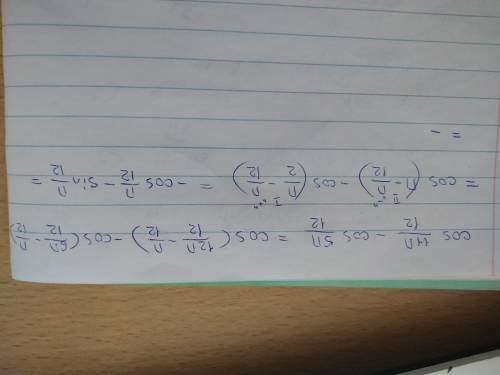 cos 11π/12 − cos 5π/12 = cos (12π/12 − π/12) − cos (6π/12 − π/12)
= cos (π − π/12) − cos (π/2 − π/12) = − cos π/12 − sin π/12 =
II "−" I "+"
= −